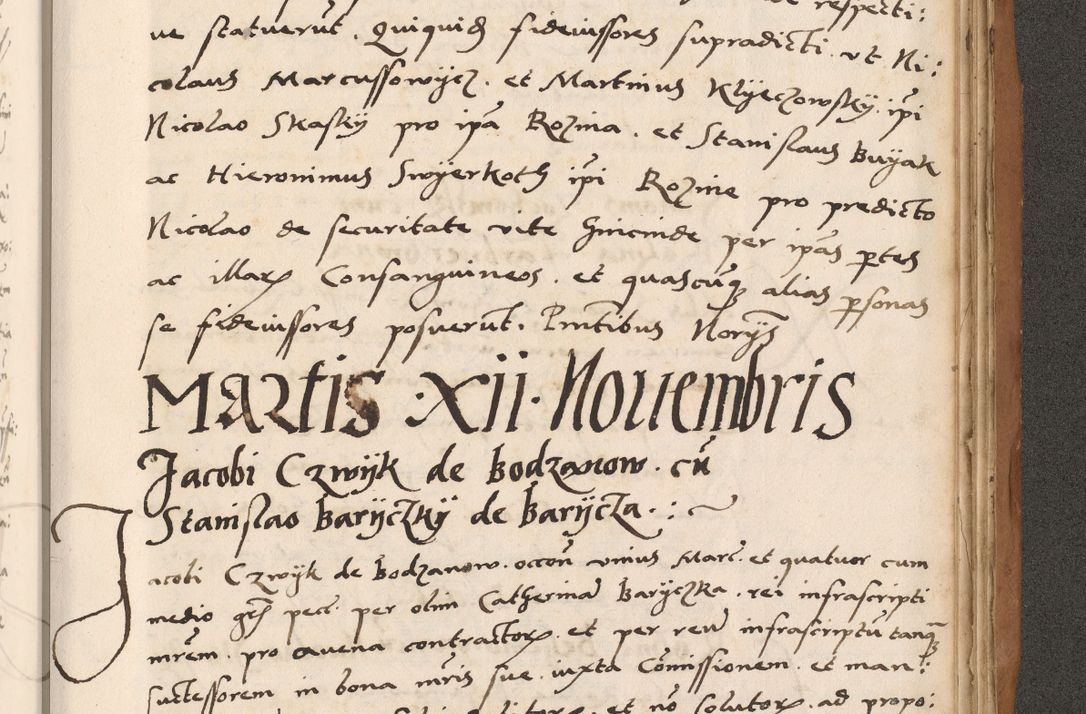 respecti:
ue statuerūt. Quiquid͂ fideiussores supradicti. vt Ni:
colaus Marcussowijcz. et Martinus Klyeczowskÿ. ip̄i
Nicolao Skaskÿ pro ip̄a Rozina. et Stanislaus Buÿak
ac Hieronimus Swÿerkoth ip̄i Rozine pro predicto
Nicolao de securitate vite hincinde per ip̄as ꝑtes
ac illarꝝ Consanguineos. et quascūqꝫ alias ꝑsonas
se fideiussores posuerūt. Pn̄tibus Norÿs
Martis .Xii. Nouembris
Jacobi Czwÿk de Bodzanow. cū
Stanislao Barÿczkÿ de Barÿcza.:
Jacobi Czwÿk de Bodzanow. occōn̄ vnius Marc̄. et quatuor cum
medio gr̄s pecc̄. per olim Catherinā Barÿczka. rei infrascripti
mr̄em. pro auena contractorꝝ. et per reū infrascriptū tanqꝫ
successorem in bona mr̄is sue. iuxta Cōmissionem. et man:
et nō solutorꝝ. ad propo: